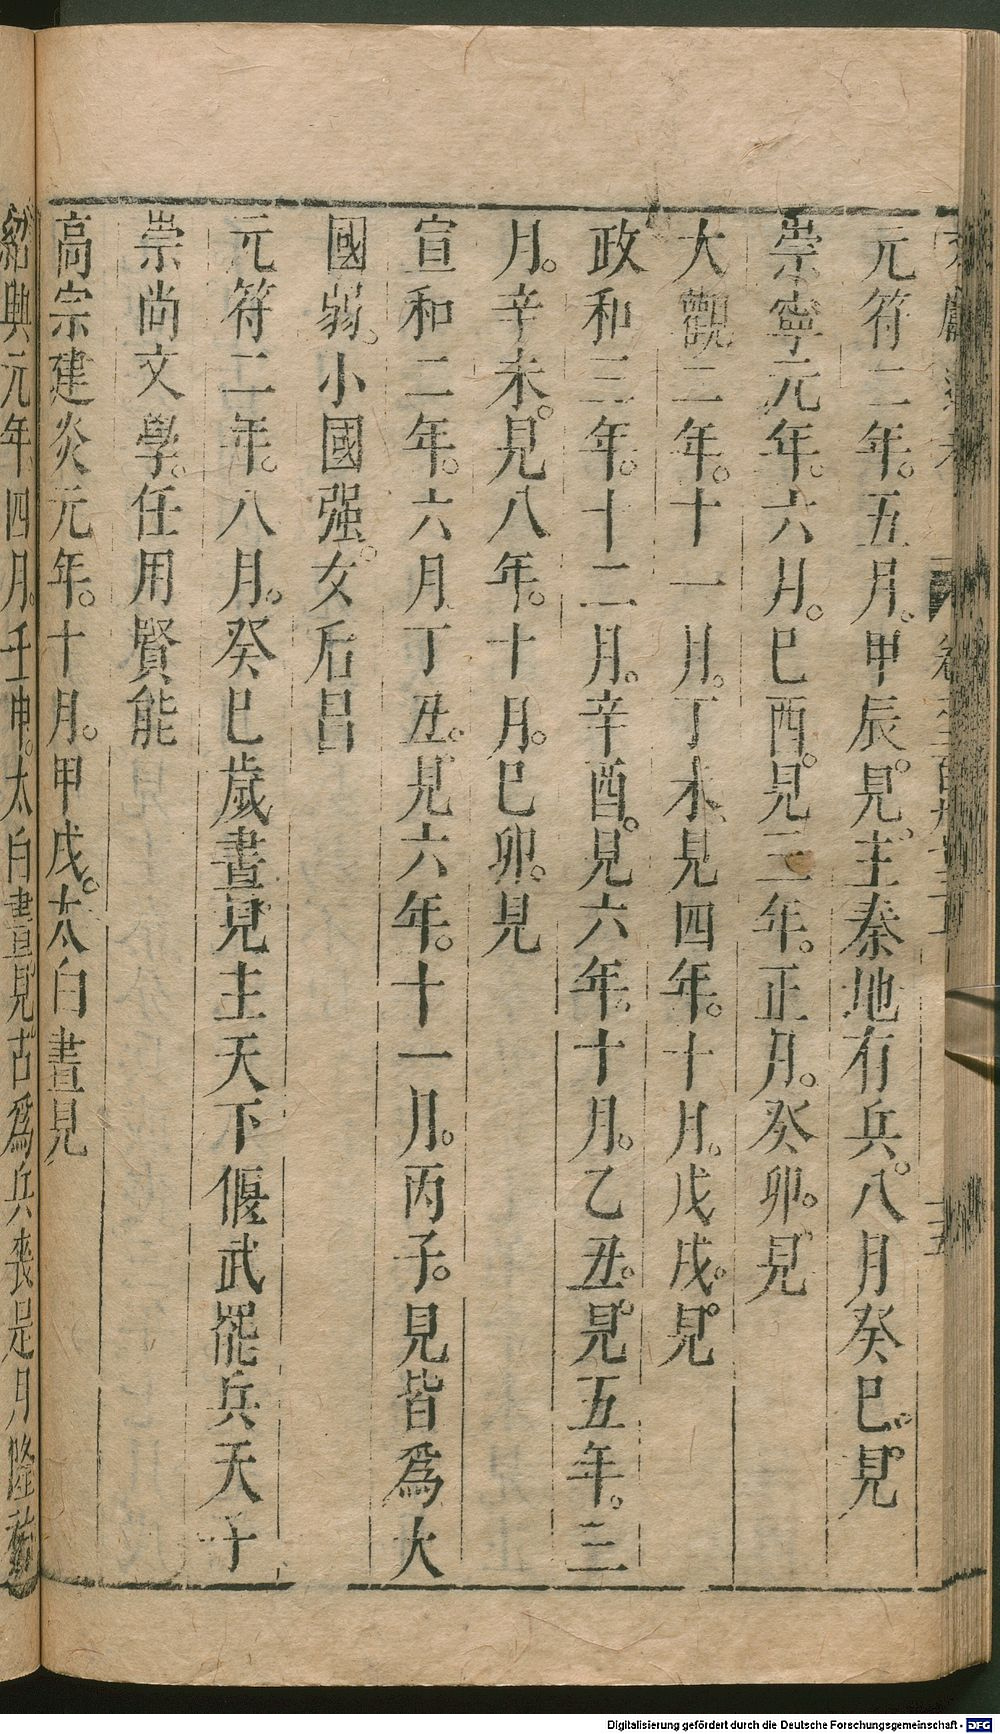 元符二年。五月。甲辰。見。主秦地有兵。八月癸巳。見
崇寧元年。六月。巳酉。見三年。正月。癸卯。見
大觀二年。十一月。丁未見四年。十月。戊戌。見
政和三年。十二月。辛酉。見六年。十月。乙丑。見五年。三
月。辛未。見八年。十月。巳卯。見
宣和二年。六月丁丑。見六年。十一月。丙子。見皆爲大
國弱。小國强。女后昌
元符二年。八月。癸巳歲晝見主天下偃武罷兵天子
崇尚文學。任用賢能
高宗建炎元年。十月。甲戌。太白晝見
紹興元年四月。壬申。太白晝見占爲兵喪是月隆祐
Digitalisierung gefördert durch die Deutsche Forschungsgemeinschaft - DFG